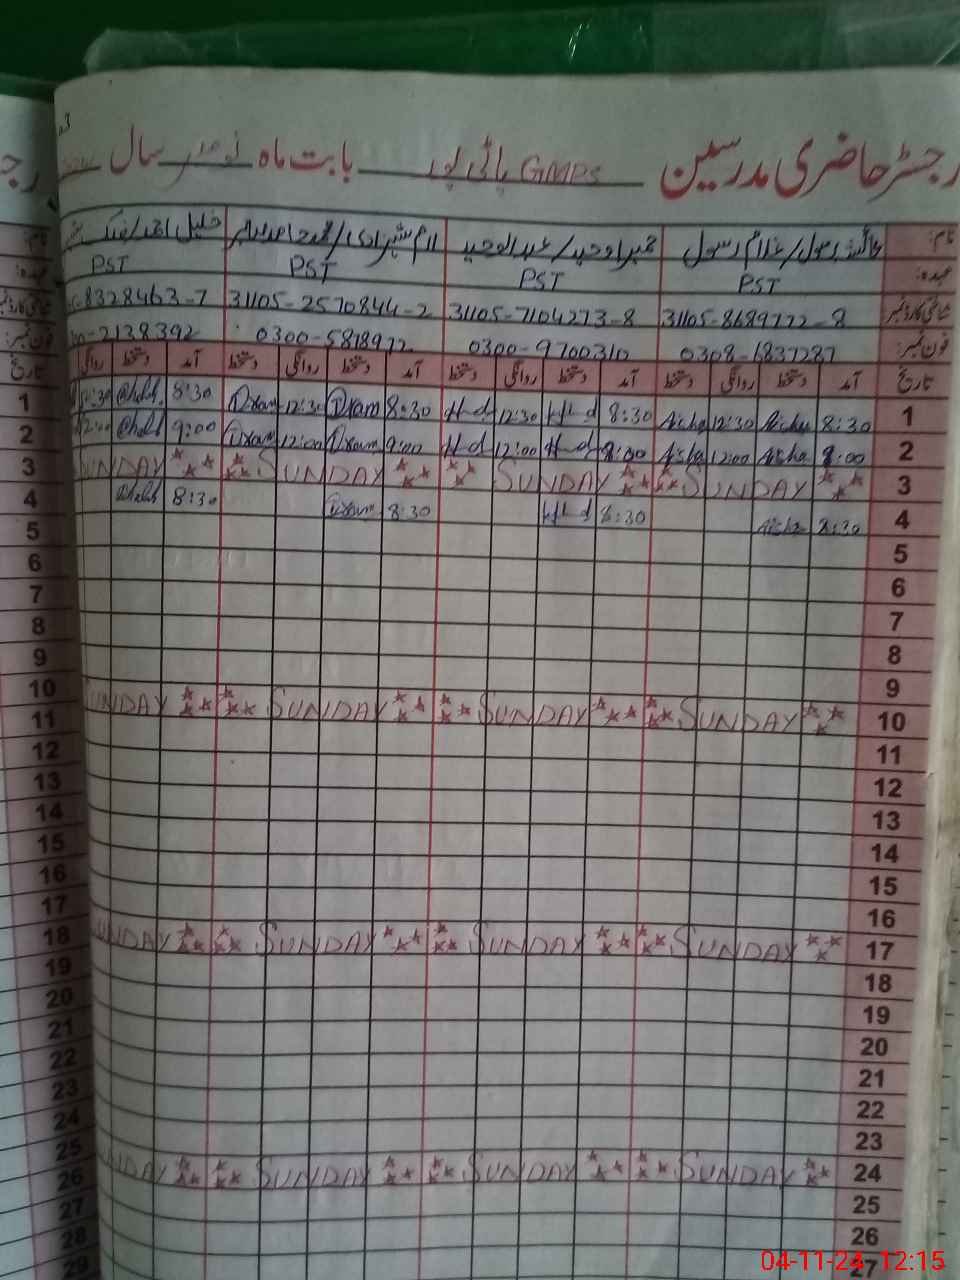 رجسٹر حاضری مدرسین GMPS پاٹی پور بابت ماہ نومبر سال
نام: عائشہ رسول/غلام رسول حمیرا وحید/عبدالوحید ارم شہزادی/
عہدہ: PST PST PST PST
شناختی کارڈ نمبر 31105-8689722-8 31105-7104273-8 31105-2570844-2 8328463-7
فون نمبر: 0308-6837287 0300-9700310 0300-5818972 2138392
تاریخ آمد دستخط روانگی دستخط آمد دستخط روانگی دستخط آمد دستخط روانگی دستخط آمد دستخط روانگی تاریخ
1 8:30 Aisha 12:30 Aisha 8:30 12:30 8:30 12:30 8:30 12:30 1
2 9:00 Aisha 12:00 Aisha 9:00 12:00 9:00 12:00 9:00 12:00 2
3 SUNDAY SUNDAY SUNDAY SUNDAY 3
4 8:30 Aisha 8:30 8:30 8:30 4
5 5
6 6
7 7
8 8
9 9
10 SUNDAY SUNDAY SUNDAY SUNDAY 10
11 11
12 12
13 13
14 14
15 15
16 16
17 SUNDAY SUNDAY SUNDAY SUNDAY 17
18 18
19 19
20 20
21 21
22 22
23 23
24 SUNDAY SUNDAY SUNDAY SUNDAY 24
25 25
26 26
27 27
28
29
04-11-24 12:15